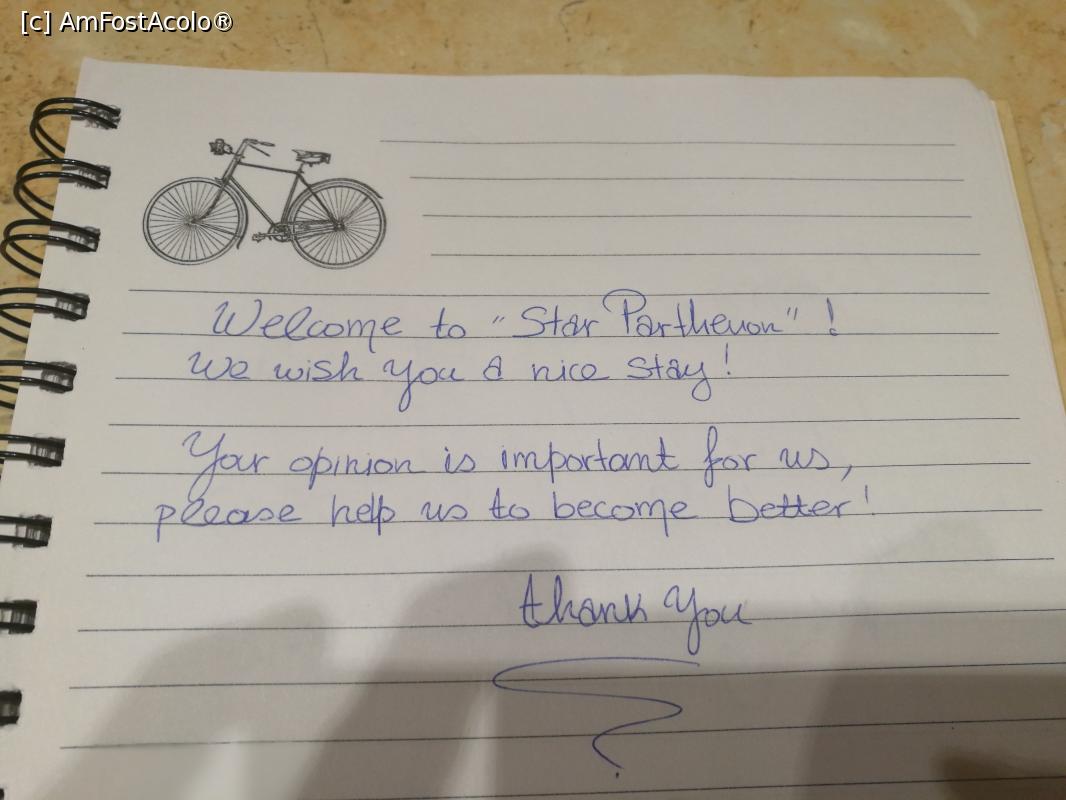 [c] AmFostAcolo®
Welcome to "Star Parthenon" !
We wish you a nice stay!
Your opinion is important for us,
please help us to become better!
thank you